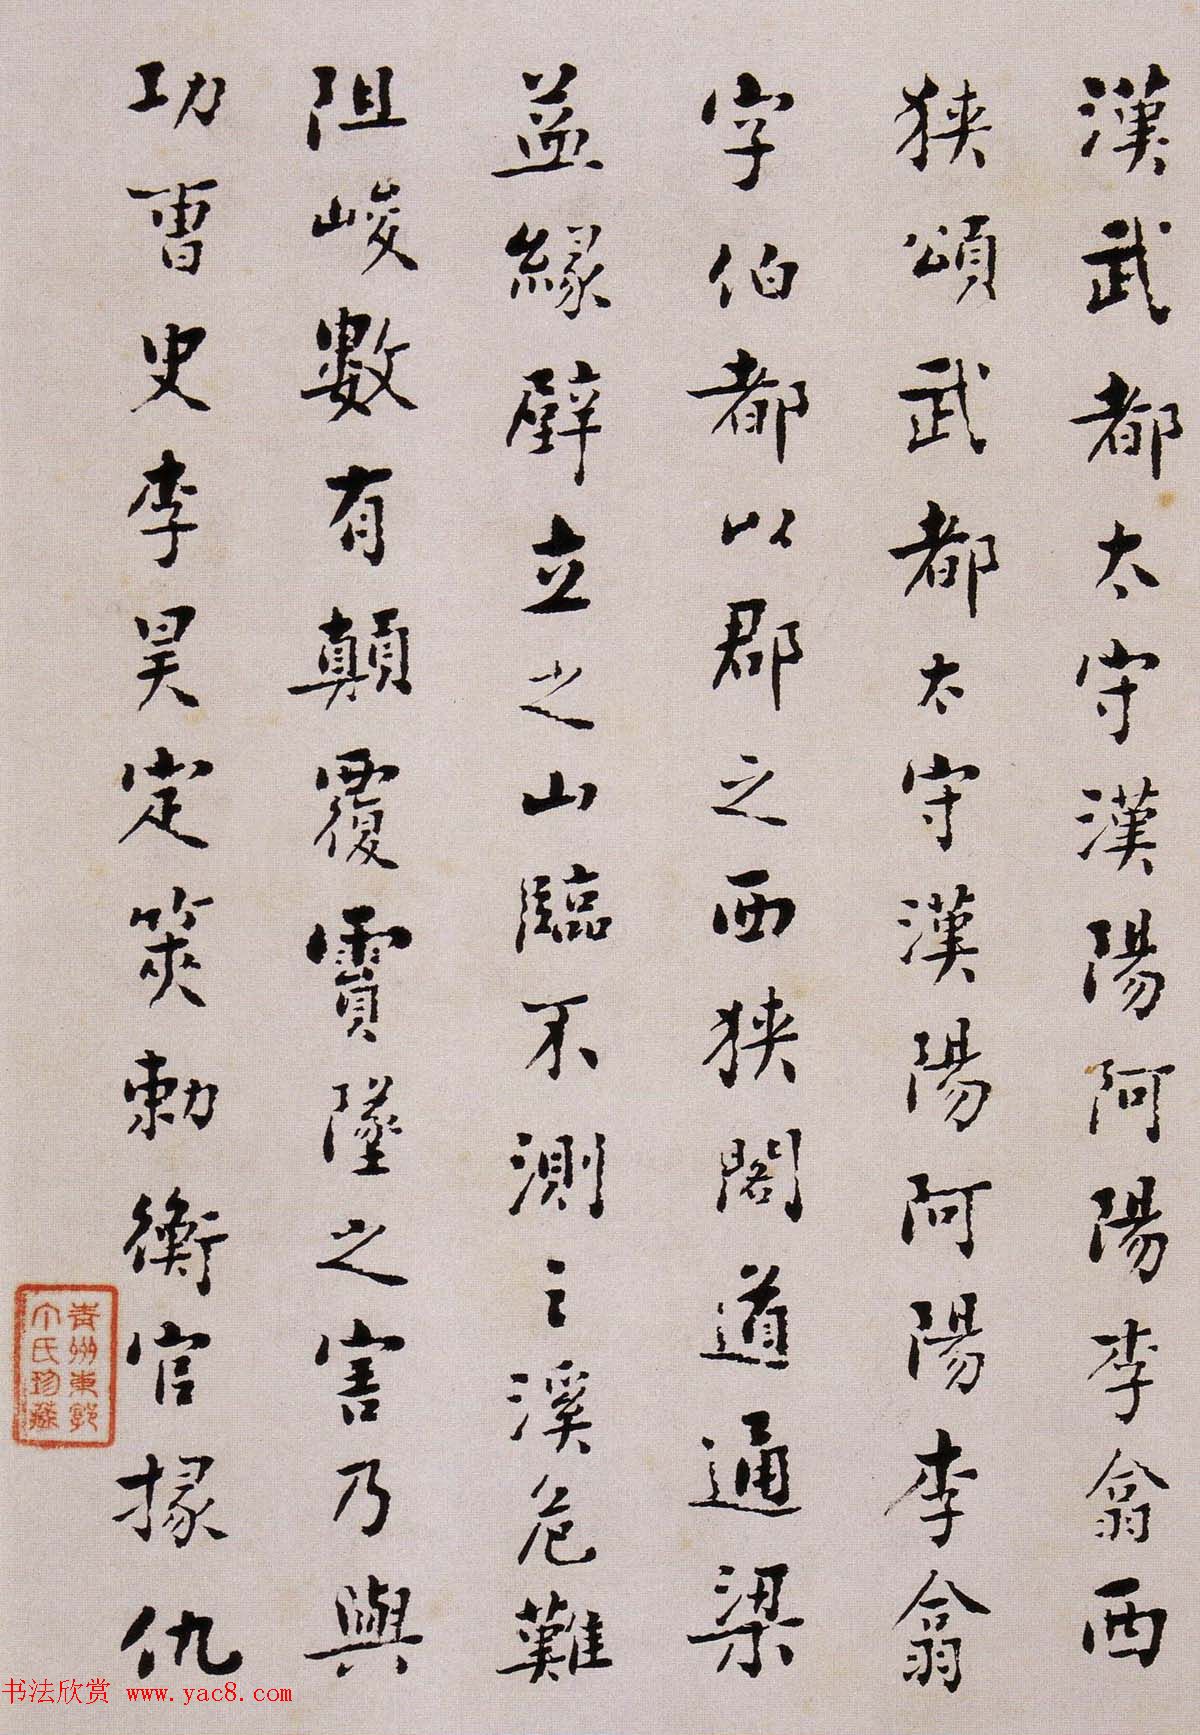 漢武都太守漢陽阿陽李翕西
狹頌武都太守漢陽阿陽李翕
字伯都以郡之西狹閣道通梁
益緣壁立之山臨不測之溪危難
阻峻數有顛覆霣墜之害乃與
功曹史李昊定筴勅衡官掾仇
青州東郭
宀氏珍藏
书法欣赏 www.yac8.com